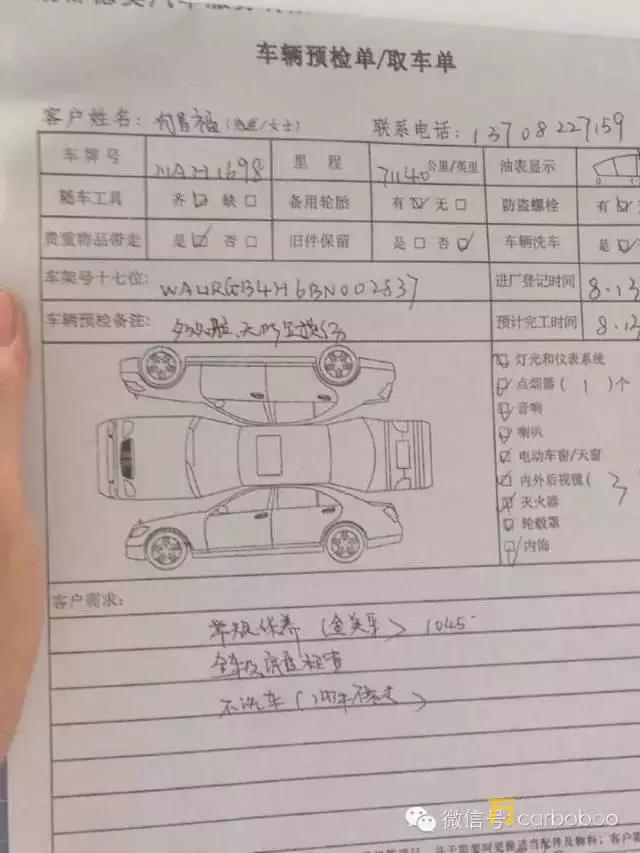 车辆预检单/取车单
客户姓名: 何昌福(先生/女士) 联系电话: 13708227159
车牌号 MAH1698 里程 71140 公里/英里 油表显示
随车工具 齐☑ 缺□ 备用轮胎 有☑ 无□ 防盗螺栓 有☑
贵重物品带走 是☑ 否□ 旧件保留 是□ 否☑ 车辆洗车 是☑
车架号十七位: WAURGB4H6BN002837 进厂登记时间 8.13
车辆预检备注: 预计完工时间 8.13
灯光和仪表系统
点烟器( 1 )个
音响
喇叭
电动车窗/天窗
内外后视镜( 3
灭火器
轮毂罩
内饰
客户需求:
常规保养(金美孚) 1045
全车及底盘检查
不洗车(
微信号: carboboo